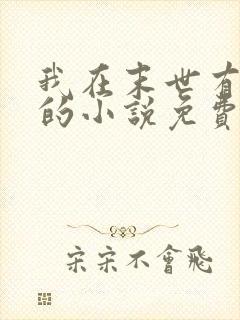 我在末世有
的小説免費
宋宋不會飛